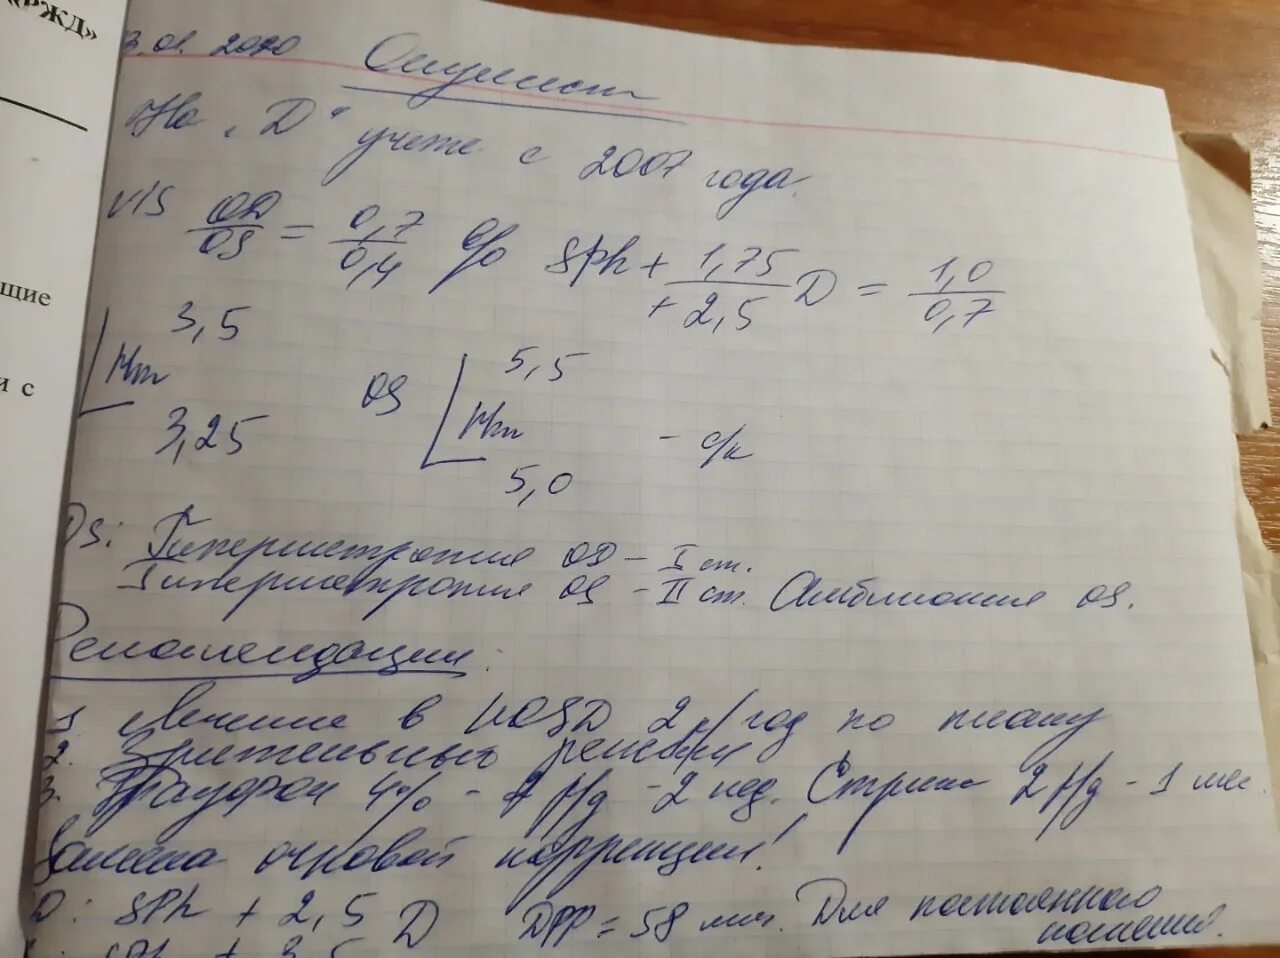 «РЖД»
щие
и с
3.01. 2020 Окулист
На „D“ учете с 2007 года.
vis OD/OS = 0,7/0,4 c/o sph + 1,75/+ 2,5 D = 1,0/0,7
3,5 5,5
Mm OS Mm - с/к
3,25 5,0
DS: Гиперметропия OD – I ст.
Гиперметропия OS – II ст. Амблиопия OS.
Рекомендации.
1 Лечение в 2 р/год по плану
2. Зрительный режим
3. Тауфон 4% - р/д - 2 нед. Стрикс 2 р/д - 1 мес.
Замена очковой коррекции!
D: sph + 2,5 D DPP = 58 мм. Для постоянного
ношения.
sph + 3,5